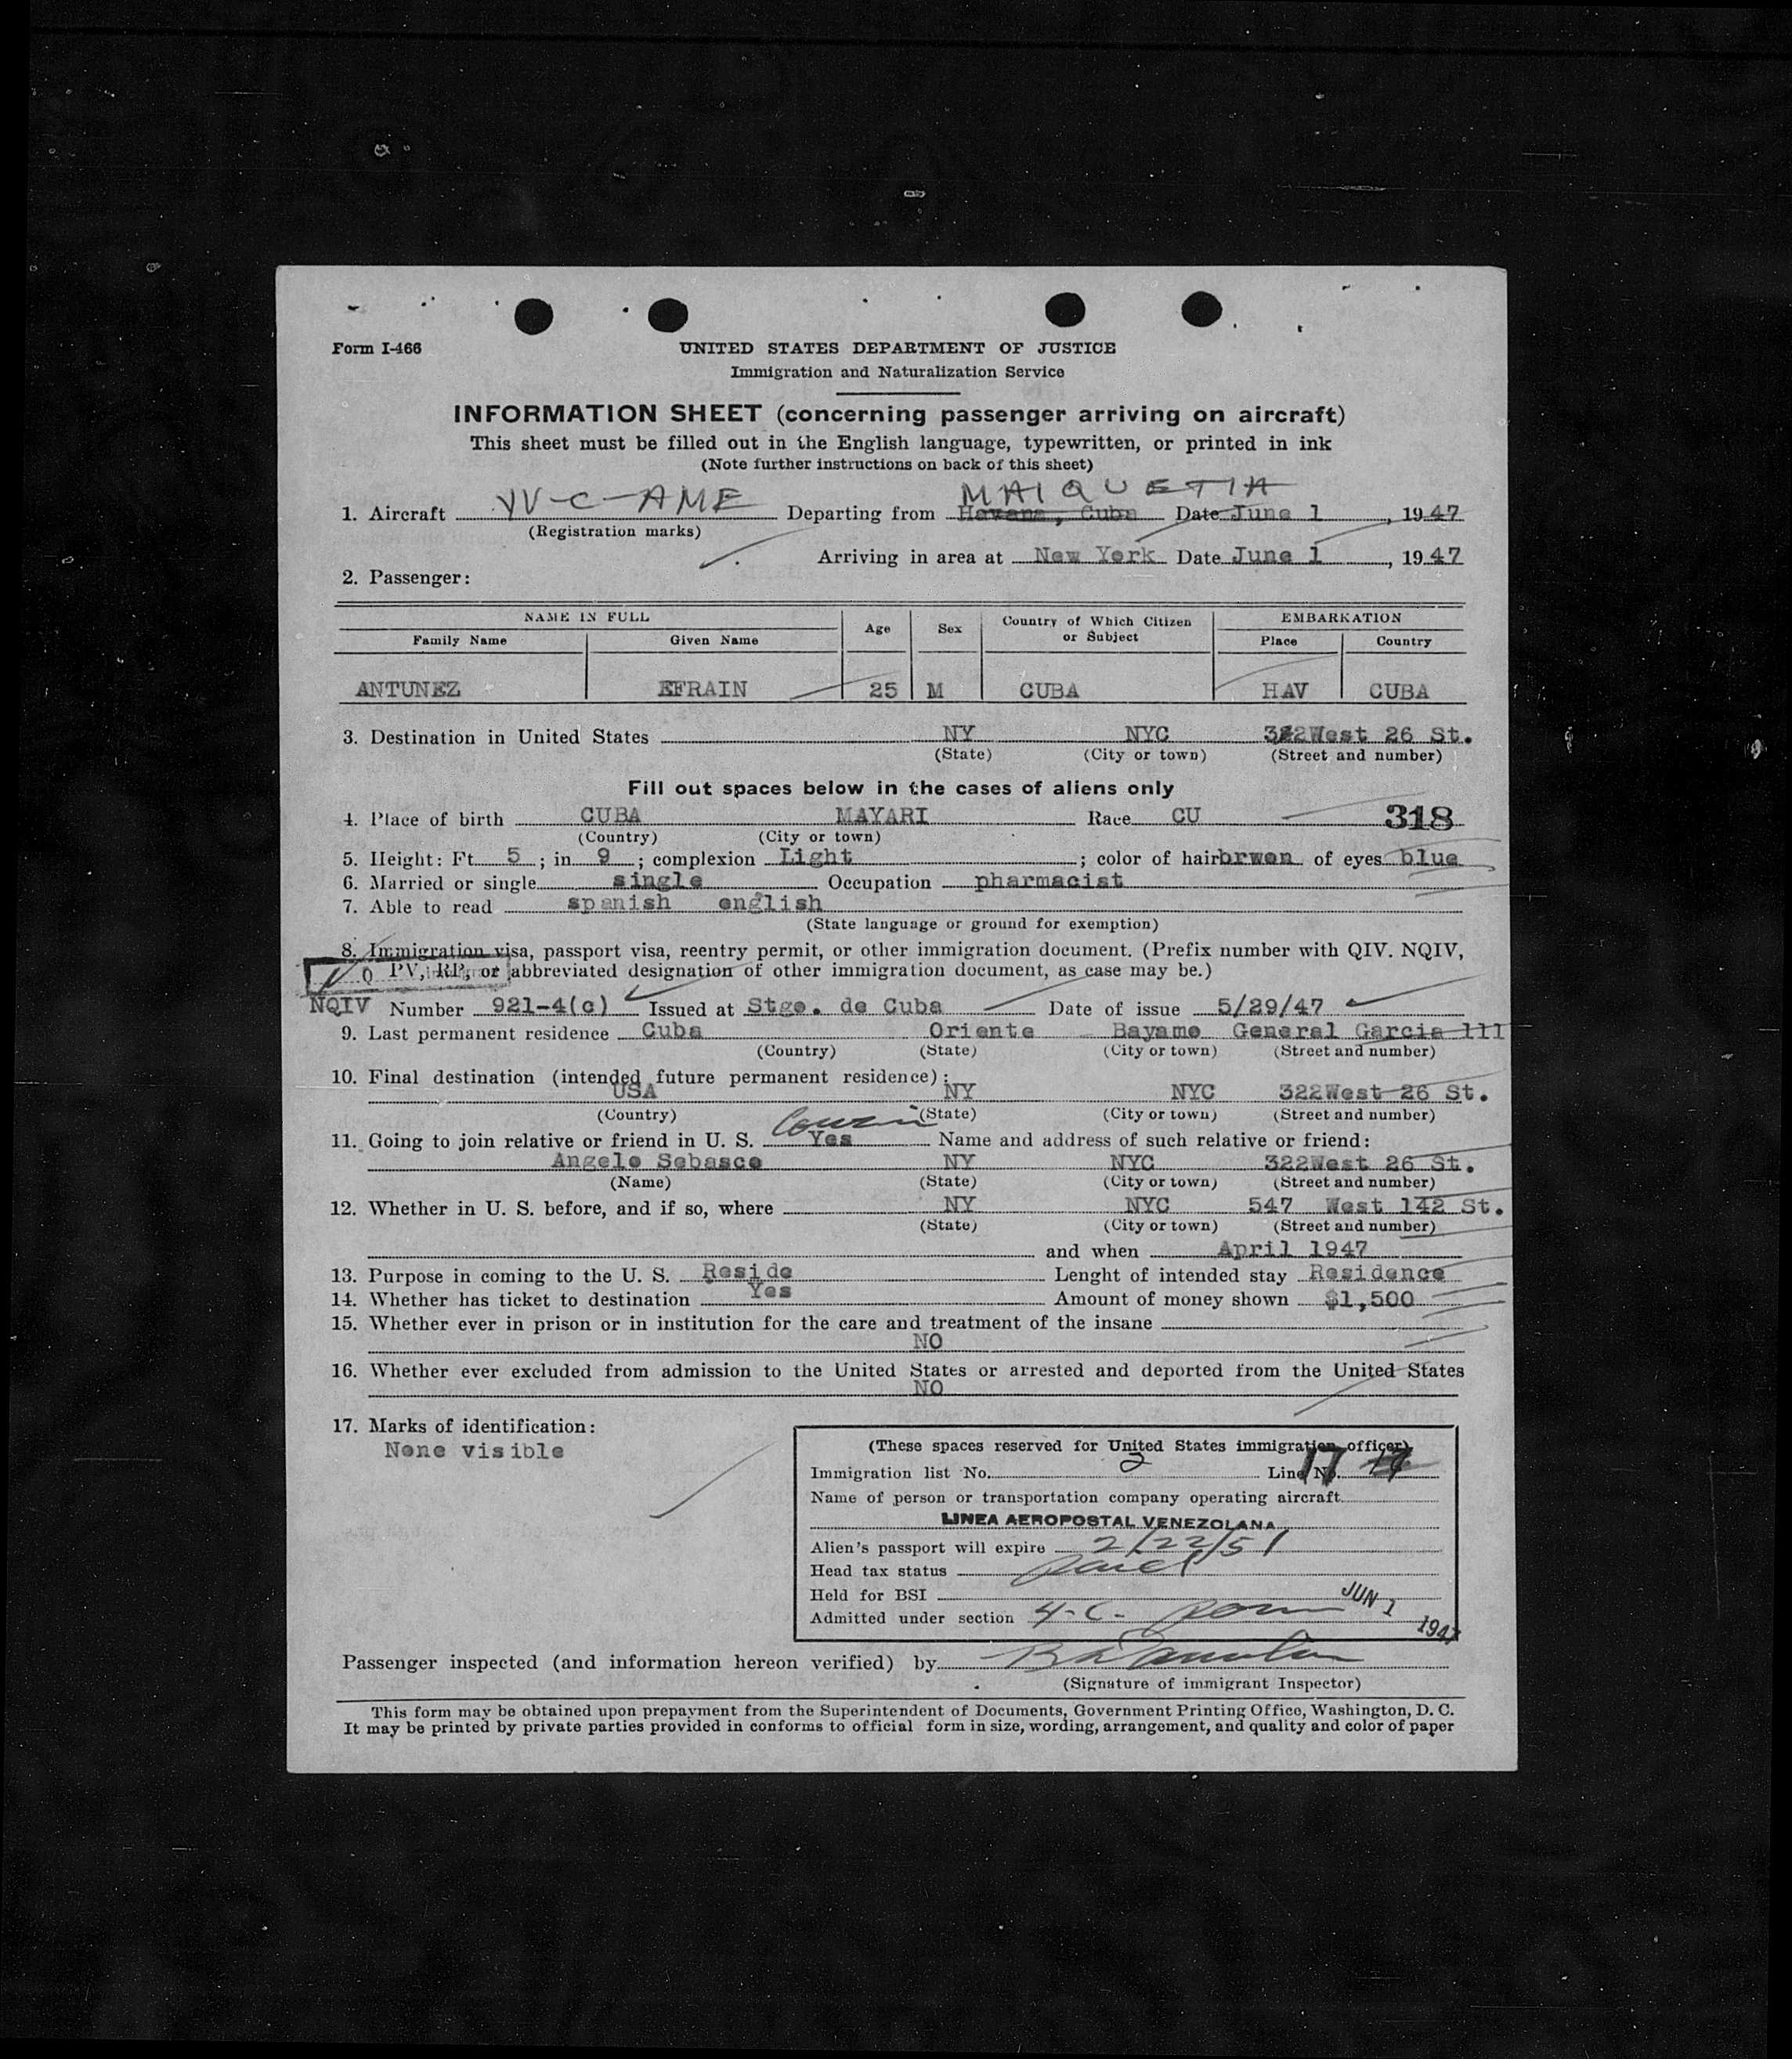 Form I-466
UNITED STATES DEPARTMENT OF JUSTICE
Immigration and Naturalization Service
INFORMATION SHEET (concerning passenger arriving on aircraft)
This sheet must be filled out in the English language, typewritten, or printed in ink
(Note further instructions on back of this sheet)
MAIQUETIA
1. Aircraft YV-C-AME Departing from Havana, Cuba Date June 1, 1947
(Registration marks)
Arriving in area at New York Date June 1, 1947
2. Passenger:
NAME IN FULL Age Sex Country of Which Citizen or Subject EMBARKATION
Family Name Given Name Place Country
ANTUNEZ EFRAIN 25 M CUBA HAV CUBA
3. Destination in United States NY NYC 322West 26 St.
(State) (City or town) (Street and number)
Fill out spaces below in the cases of aliens only
4. Place of birth CUBA MAYARI Race CU 318
(Country) (City or town)
5. Height: Ft. 5; in 9; complexion Light; color of hair brwon of eyes blue
6. Married or single single Occupation pharmacist
7. Able to read spanish english
(State language or ground for exemption)
8. Immigration visa, passport visa, reentry permit, or other immigration document. (Prefix number with QIV. NQIV,
PV, RP, or abbreviated designation of other immigration document, as case may be.)
NQIV Number 921-4(c) Issued at Stgo. de Cuba Date of issue 5/29/47
9. Last permanent residence Cuba Oriente Bayamo General Garcia 111
(Country) (State) (City or town) (Street and number)
10. Final destination (intended future permanent residence):
USA NY NYC 322West 26 St.
(Country) (State) (City or town) (Street and number)
Cousin
11. Going to join relative or friend in U. S. Yes Name and address of such relative or friend:
Angelo Sebasco NY NYC 322West 26 St.
(Name) (State) (City or town) (Street and number)
12. Whether in U. S. before, and if so, where NY NYC 547 West 142 St.
(State) (City or town) (Street and number)
and when April 1947
13. Purpose in coming to the U. S. Reside Lenght of intended stay Residence
14. Whether has ticket to destination Yes Amount of money shown $1,500
15. Whether ever in prison or in institution for the care and treatment of the insane
NO
16. Whether ever excluded from admission to the United States or arrested and deported from the United States
NO
17. Marks of identification:
None visible
(These spaces reserved for United States immigration officer)
Immigration list No. 2 Line No. 17
Name of person or transportation company operating aircraft
LINEA AEROPOSTAL VENEZOLANA
Alien's passport will expire 2/22/51
Head tax status
Held for BSI
Admitted under section 4-C-
JUN 1 1947
Passenger inspected (and information hereon verified) by
(Signature of immigrant Inspector)
This form may be obtained upon prepayment from the Superintendent of Documents, Government Printing Office, Washington, D. C.
It may be printed by private parties provided in conforms to official form in size, wording, arrangement, and quality and color of paper